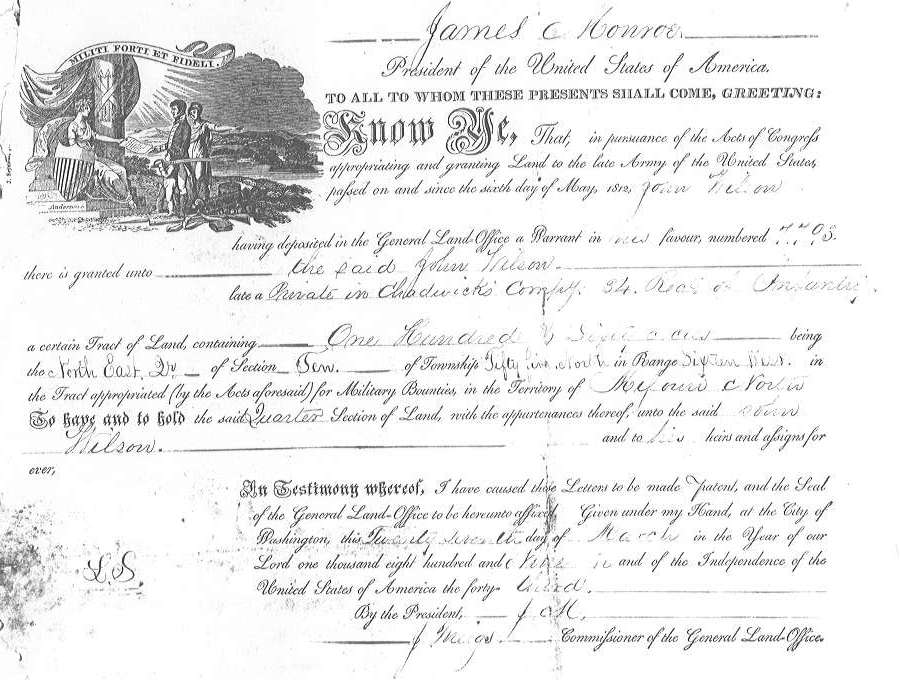 James Monroe
MILITI FORTI ET FIDELI.
President of the United States of America.
TO ALL TO WHOM THESE PRESENTS SHALL COME, GREETING:
Know Ye, That, in pursuance of the Acts of Congress
appropriating and granting Land to the late Army of the United States,
passed on and since the sixth day of May, 1812, John Wilson
having deposited in the General Land-Office a Warrant in his favour, numbered 7793.
there is granted unto the said John Wilson
late a Private in Chadwick's Compy. 34. Regt. of Infantry.
a certain Tract of Land, containing One Hundred & Sixty acres being
the North East Qr of Section Ten of Township Fifty five North in Range Sixteen West. in
the Tract appropriated (by the Acts aforesaid) for Military Bounties, in the Territory of Missouri North
To have and to hold the said Quarter Section of Land, with the appurtenances thereof, unto the said John
Wilson. and to his heirs and assigns for
ever,
In Testimony whereof, I have caused these Letters to be made Patent, and the Seal
of the General Land-Office to be hereunto affixed. Given under my Hand, at the City of
Washington, this Twenty seventh day of March in the Year of our
Lord one thousand eight hundred and and of the Independence of the
United States of America the forty-third.
L.S.
By the President, J M.
J Meigs Commissioner of the General Land-Office.